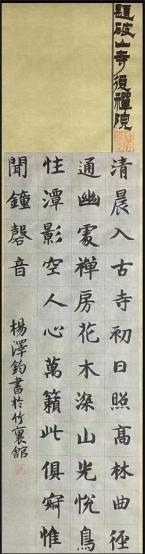 題破山寺後禪院
清晨入古寺初日照高林曲徑
通幽處禪房花木深山光悅鳥
性潭影空人心萬籟此俱寂惟
聞鐘磬音
楊澤鈞書於竹裏館